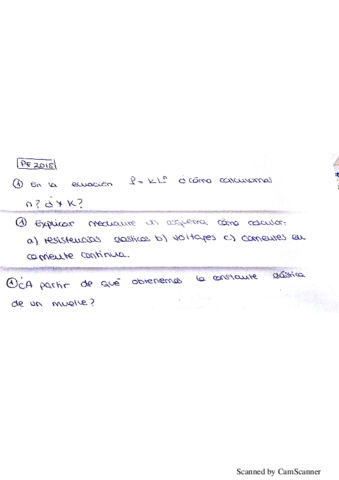 PE 2015
① En la ecuación f = KLⁿ ¿cómo calculamos
n? ¿Y K?
① Explicar mediante un esquema cómo calcular:
a) resistencias elásticas b) voltajes c) corrientes en
corriente continua.
① ¿A partir de qué obtenemos la constante elástica
de un muelle?
Scanned by CamScanner